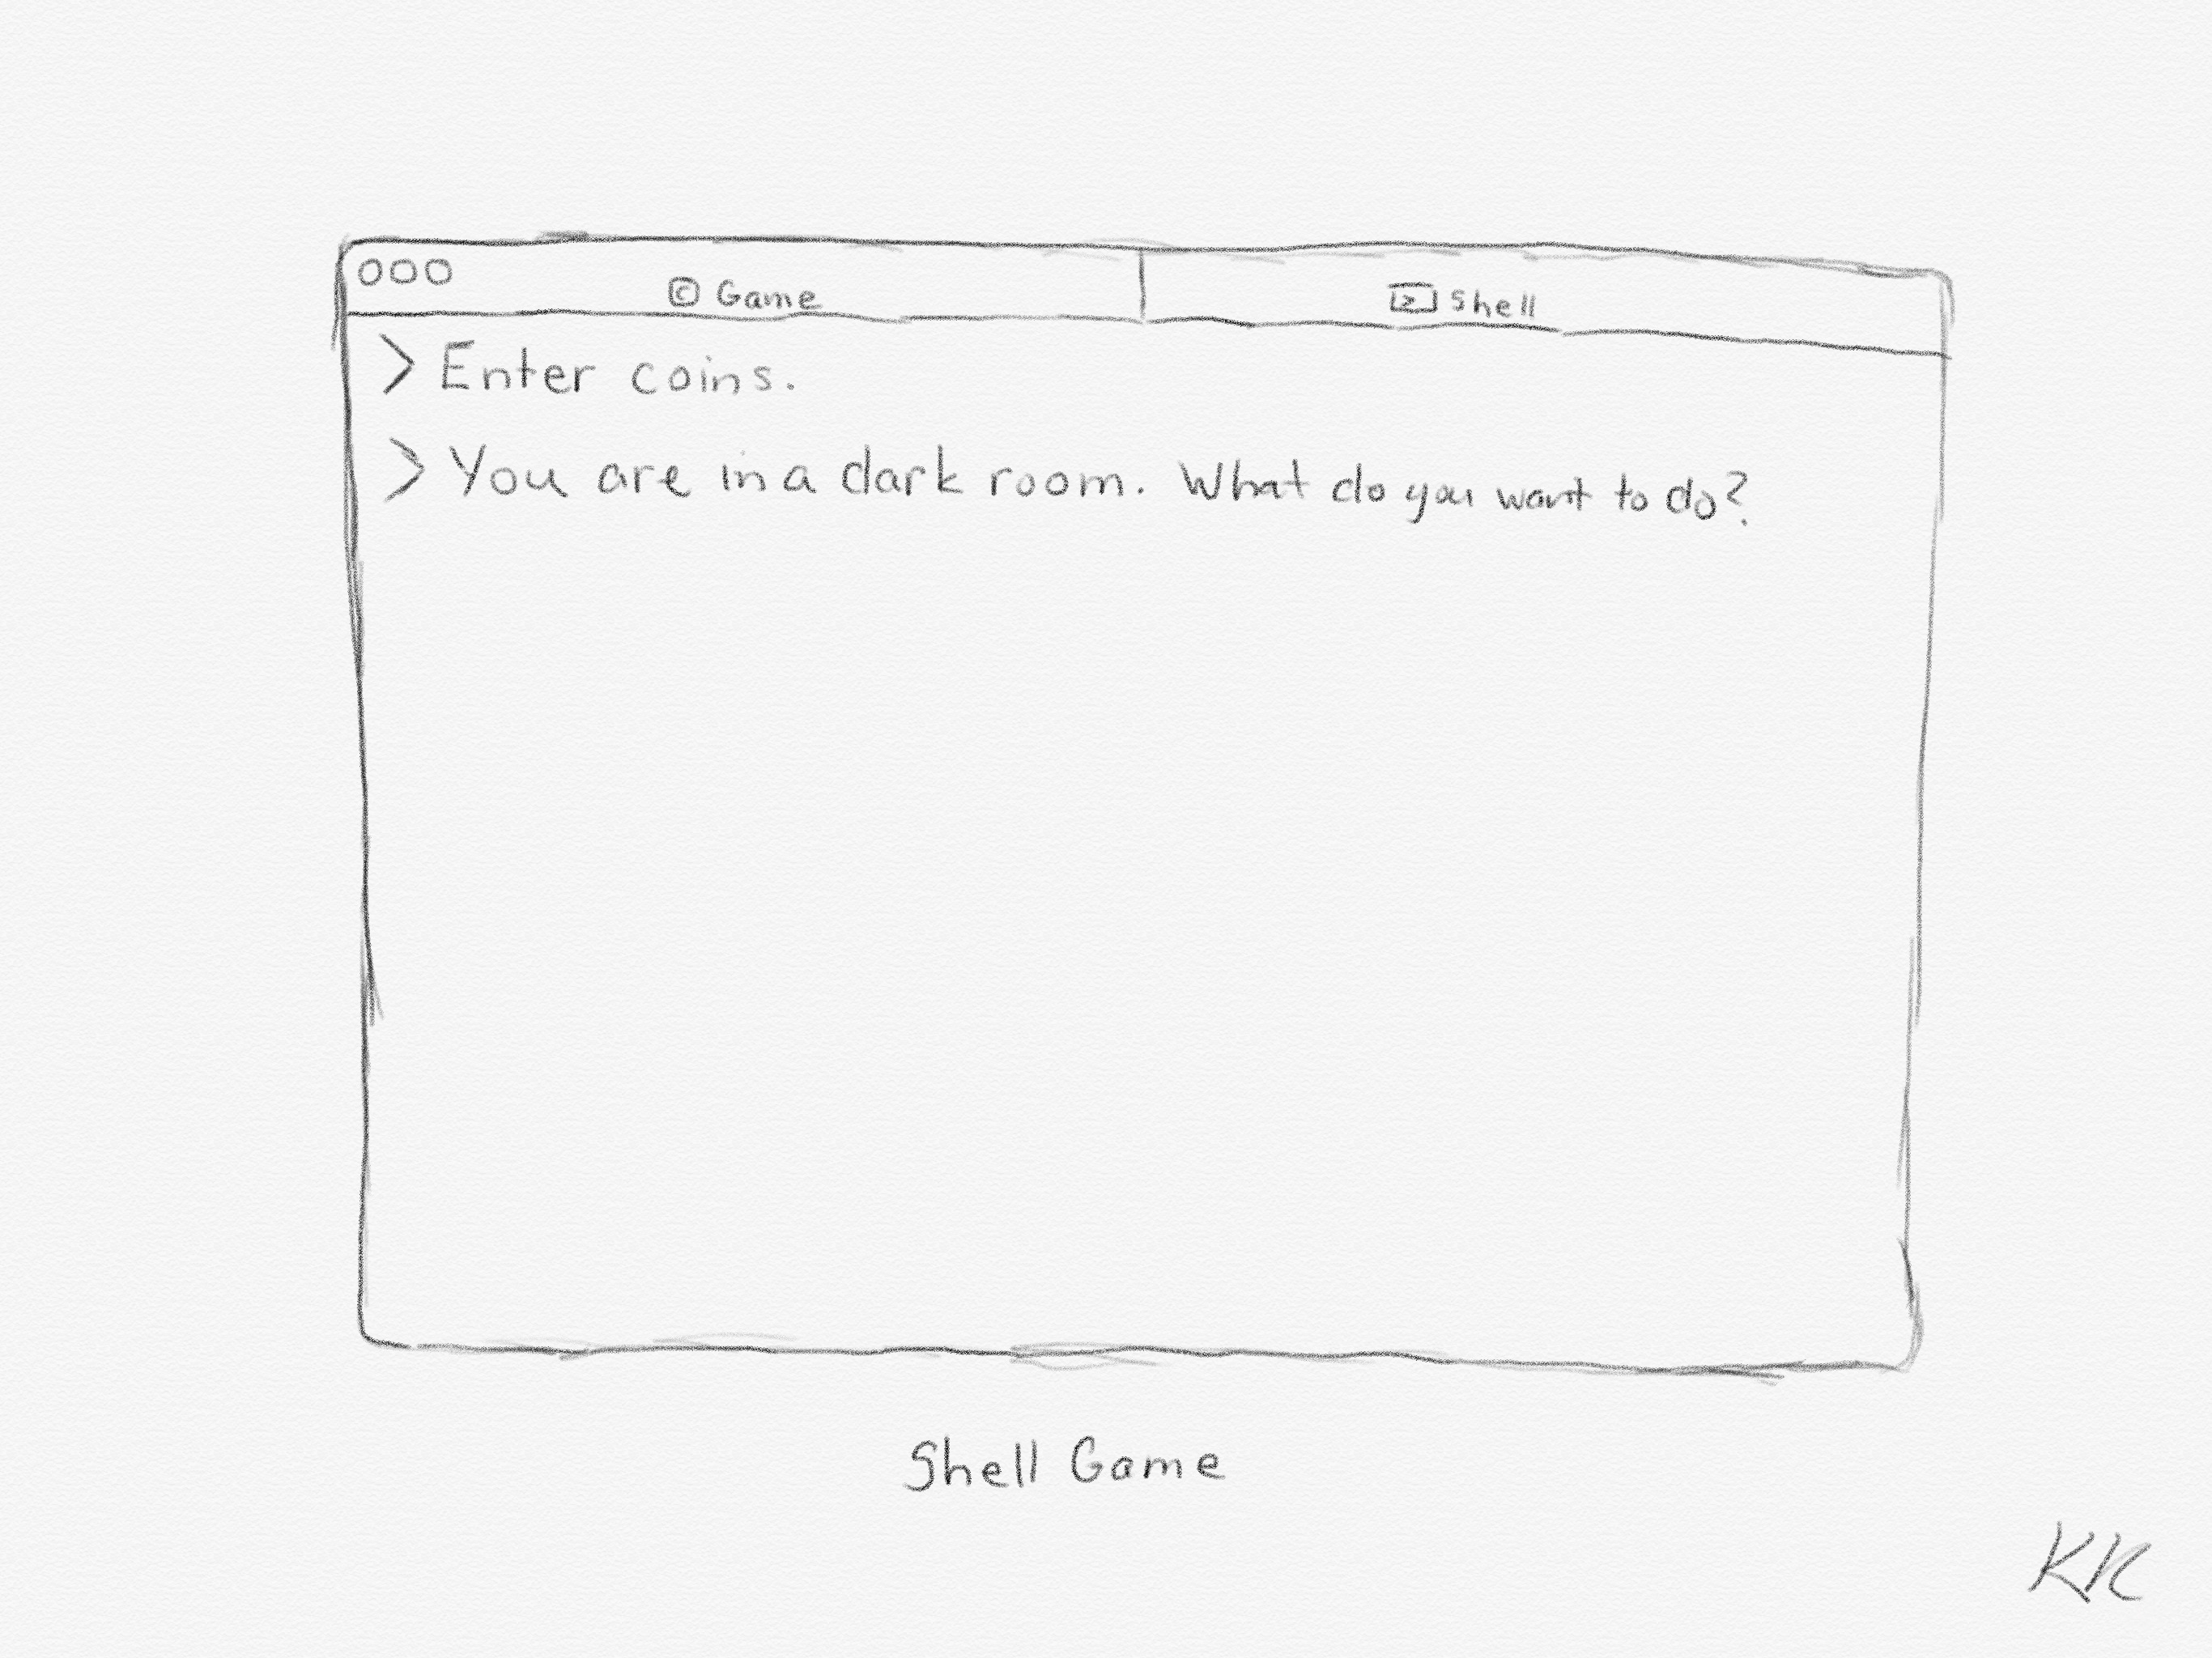 © Game
> Shell
> Enter coins.
> You are in a dark room. What do you want to do?
Shell Game
KK